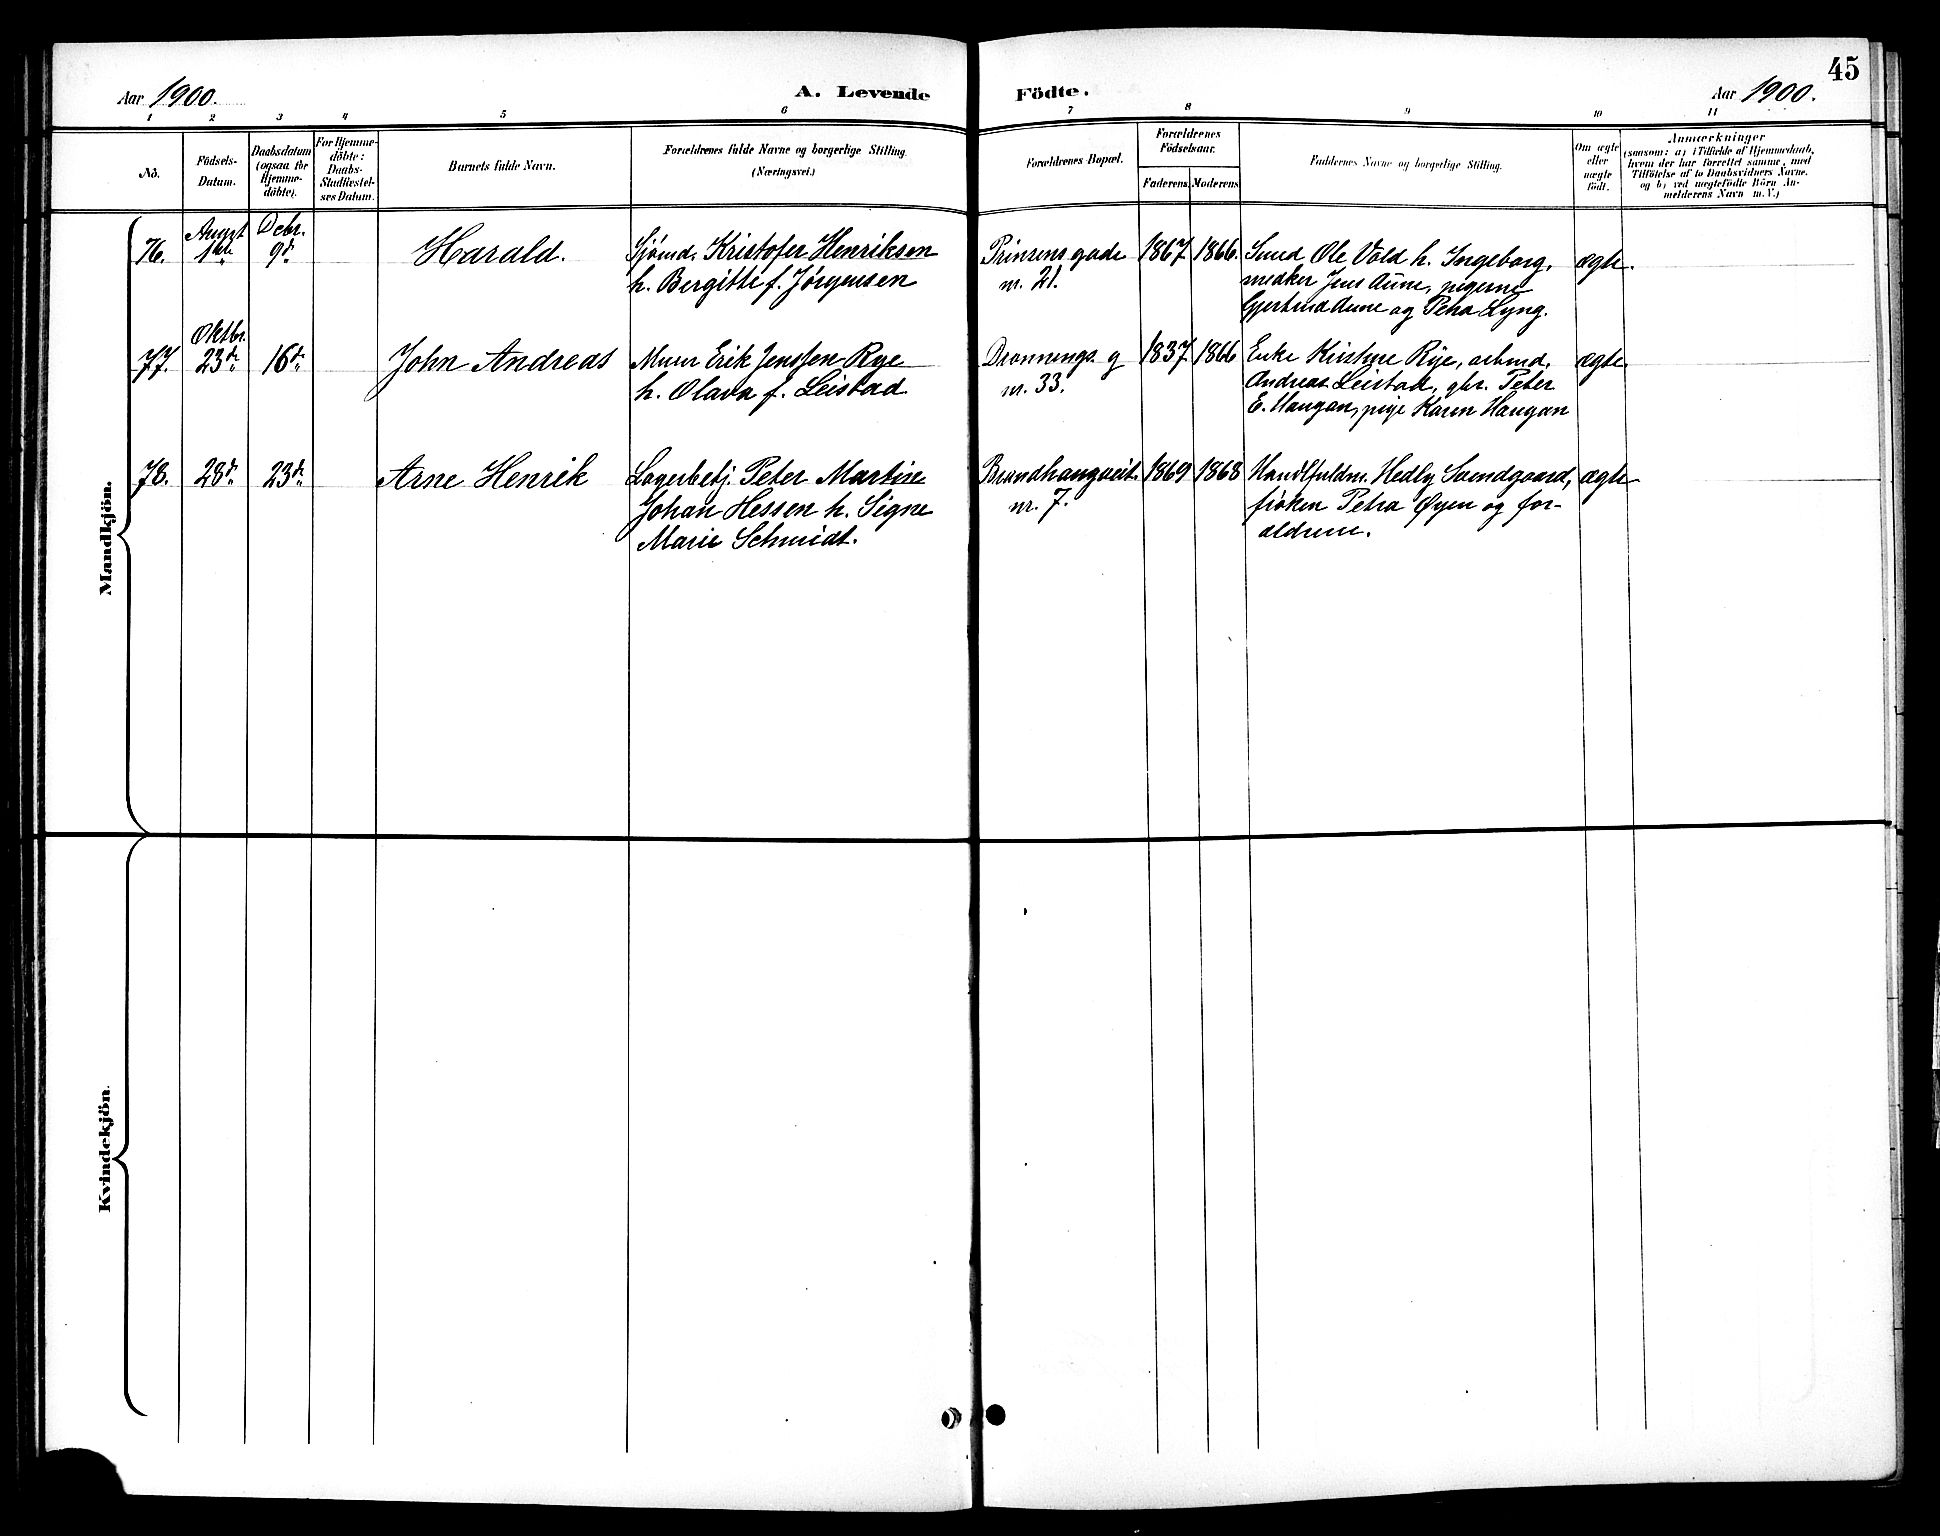 45
Aar 1900.
A. Levende Födte.
Aar 1900.
1 2 3 4 5 6 7 8 9 10 11
No.
Födsels-
Datum.
Daabsdatum
(ogsaa for
Hjemme-
döbte).
For Hjemme-
döbte:
Daabs-
Stadfæstel-
ses Datum.
Barnets fulde Navn.
Forældrenes fulde Navne og borgerlige Stilling.
(Næringsvei.)
Forældrenes Bopæl.
Forældrenes
Födselsaar.
Faderens.
Moderens.
Faddernes Navne og borgerlige Stilling.
Om ægte
eller
uægte
födt.
Anmærkninger
(saasom: a) i Tilfælde af Hjemmedaab,
hvem der har forrettet samme, med
Tilföielse af to Daabsvidners Navne.
og b) ved uægtefödte Börn An-
melderens Navn m. V.)
Mandkjön.
76.
August
1ste
Debr.
9de
Harald.
Sjømd. Kristofer Henriksen
h. Bergitte f. Jørgensen
Prinsens gade
nr. 21.
1867
1866.
Smed Ole Vold h. Ingeborg,
Jens Aune, pigerne
Gjertrud Aune og Petra Lyng.
ægte.
77.
Oktbr.
23de
16de
John Andreas
Murer Erik Jenssen Rye
h. Olava f. Leistad
Dronnings. g
nr. 33.
1837
1866
Enke Kirstine Rye, arbmd.
Andreas Leistad, gbr. Peter
E. Haugan, pige Karen Haugan
ægte.
78.
28de
23de
Arne Henrik
Lagerbetj. Peter Martin
Johan Hessen h. Signe
Marie Schmidt.
Brandhaugveit.
nr. 7.
1869
1868
Handlfuldm. Hedly Svendgaard,
frøken Petra Øyen og for-
ældrene.
ægte
Kvindekjön.